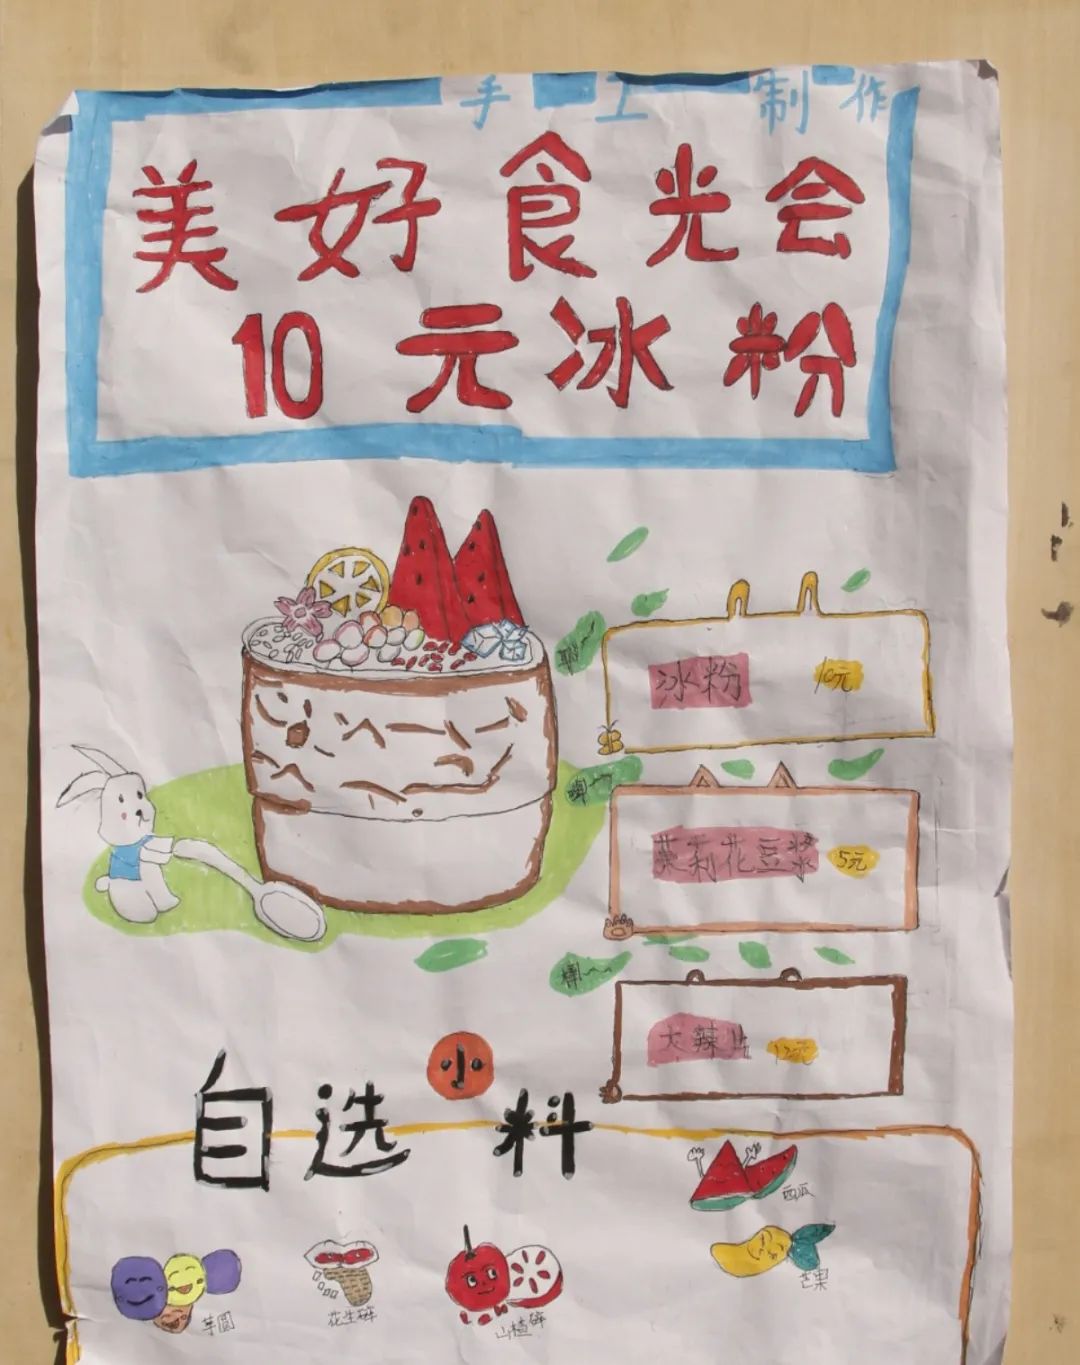 手工制作
美好食光会
10元冰粉
冰粉 10元
茉莉花豆浆 5元
大辣片 12元
自选小料
西瓜
芒果
芋圆
花生碎
山楂碎